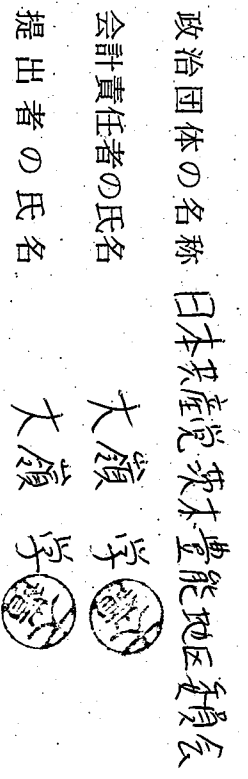 政治団体の名称 日本共産党茨木豊能地区委員会
会計責任者の氏名 大嶺 学
提出者の氏名 大嶺 学